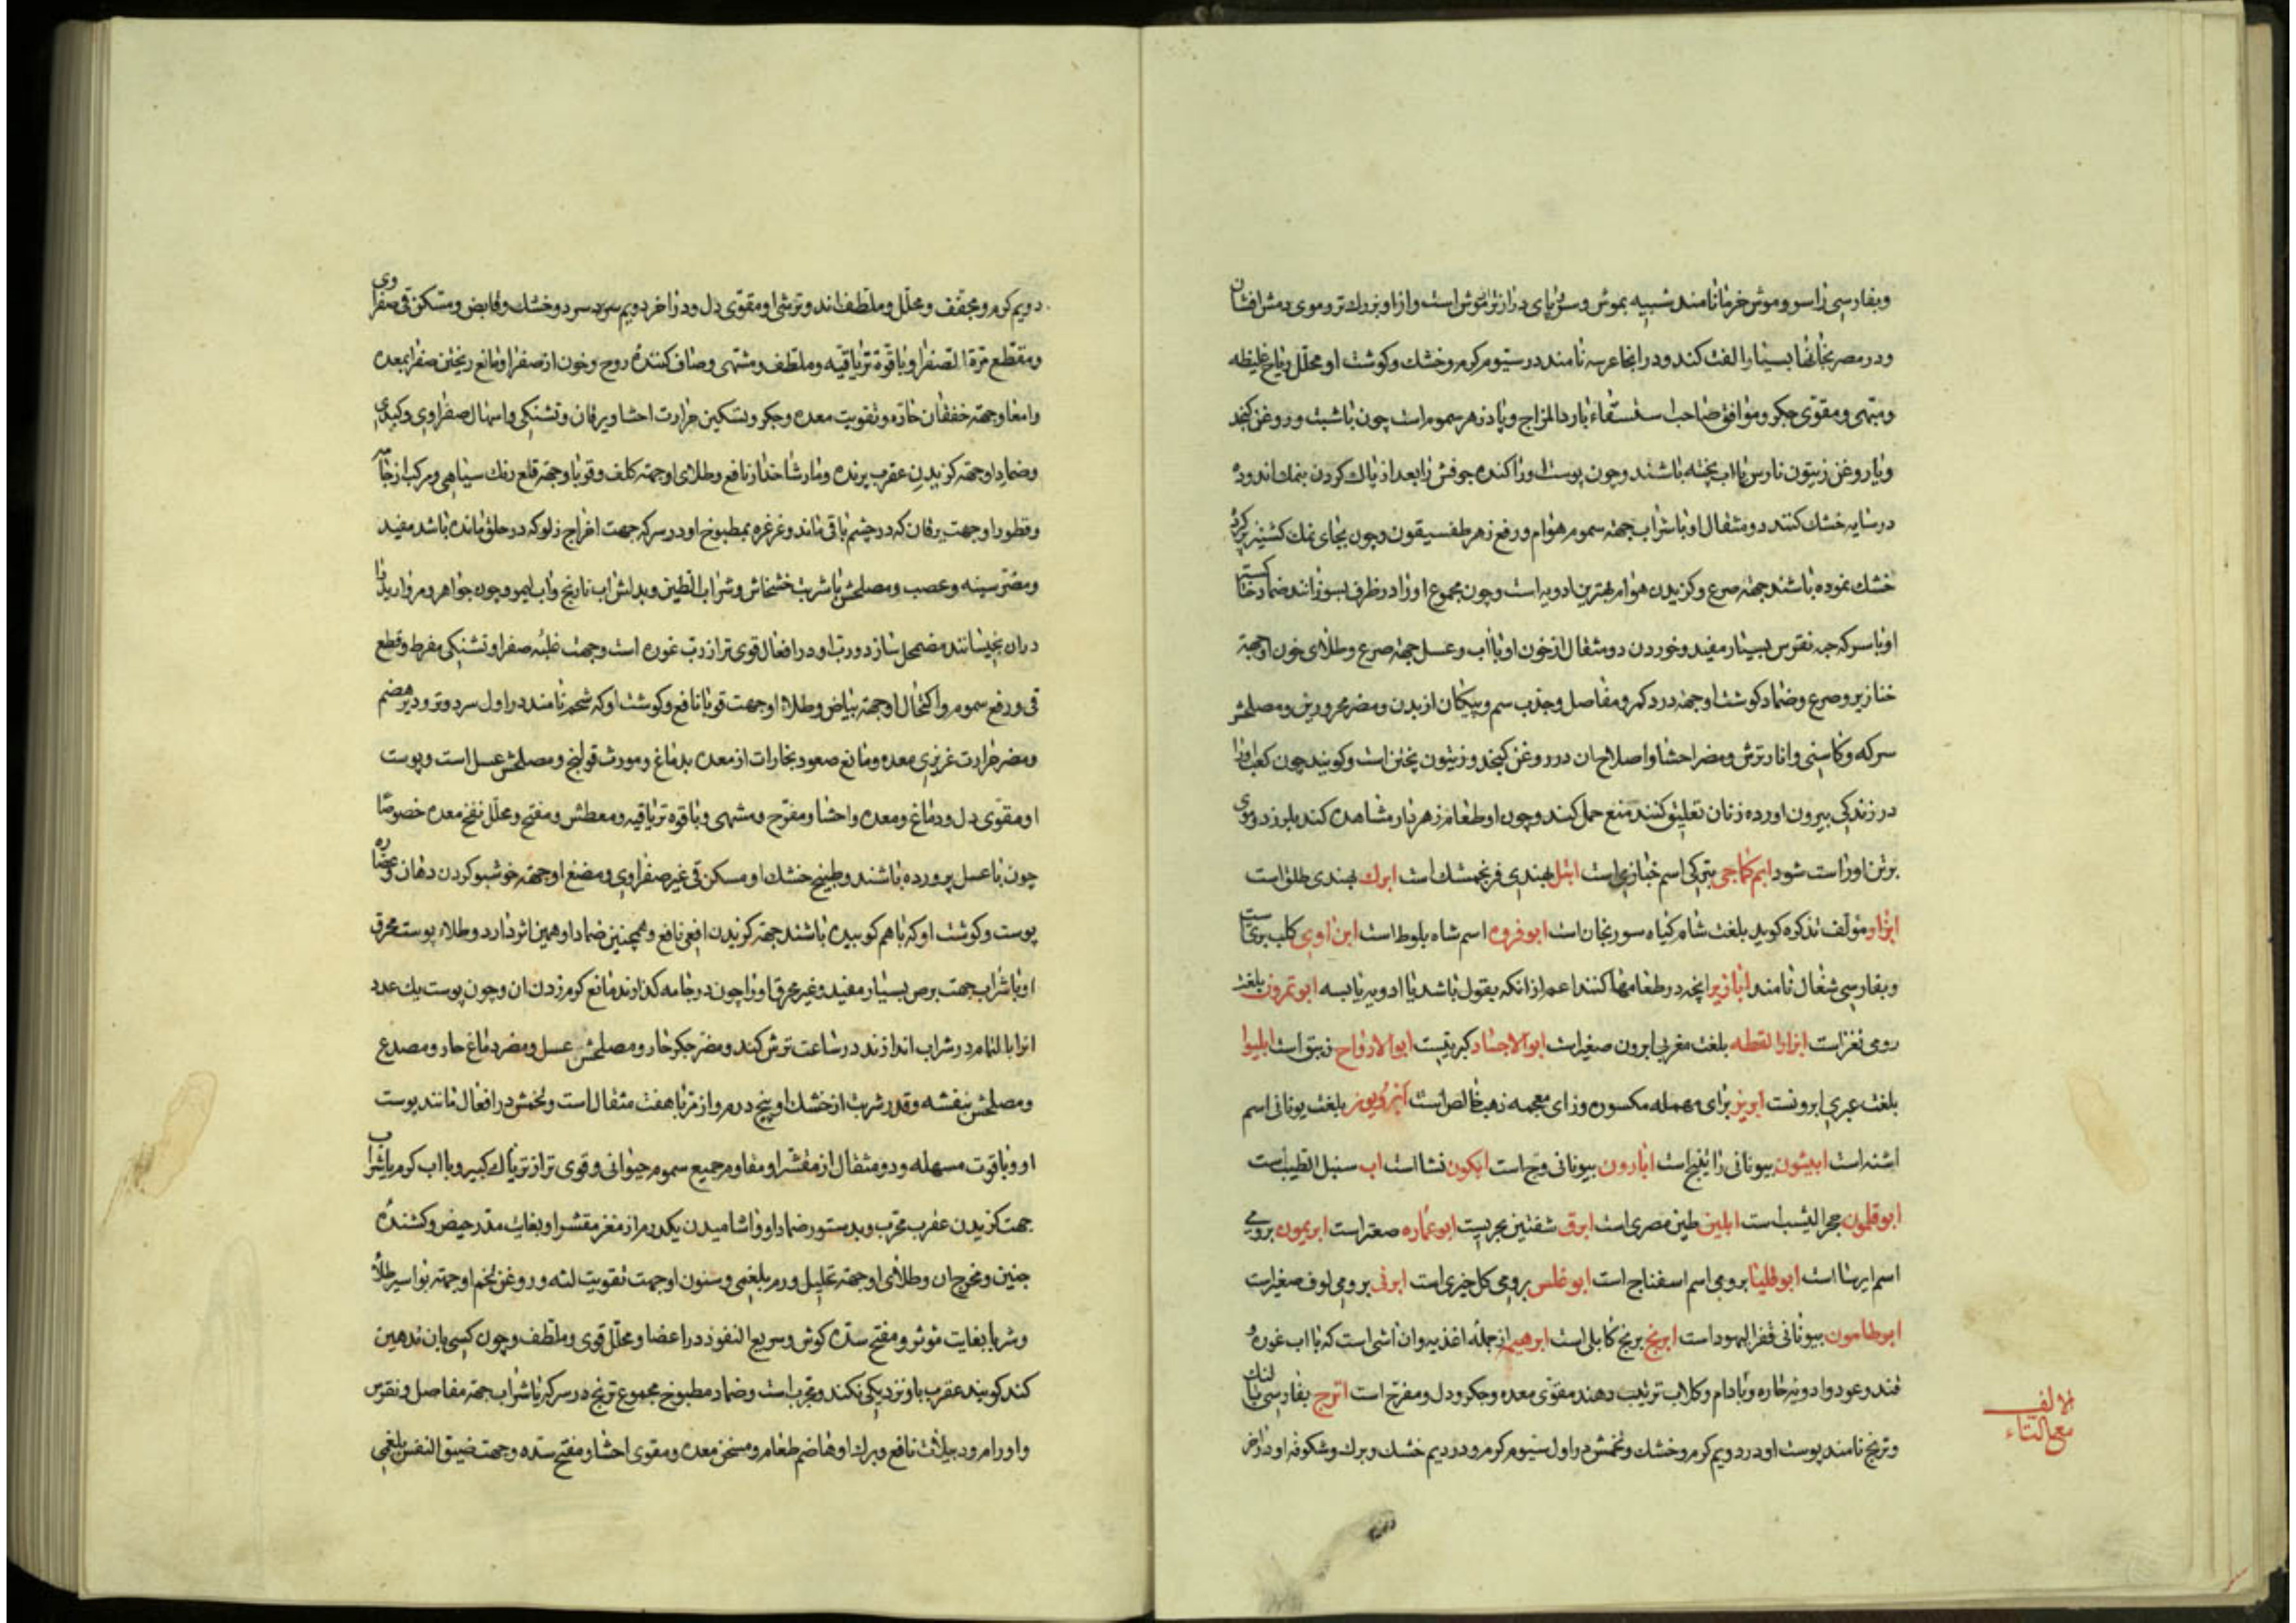 وبفارسی راسو و موش خرما نامند شبیه بموش و سر و پای درازتر از موش است و ازو بزرك تر و موی دمش افشان
و در مصر بخانها بسیار الفت کند و در انجا عرسه نامند در سیوم کرم و خشك و کوشت او محلل ریاح غلیظه
و مبهی و مقوی جکر و موافق صاحب استسقاء بارد المزاج و پادزهر سموم است چون با شبت و روغن کنجد
و یا روغن زیتون نارس با اب پخته باشند و چون پوست او را کنده جوفش را بعد از پاك کردن بنمك اندوده
در سایه خشك کنند دو مثقال او با شراب جهة سموم هوام و رفع زهر طفسیقون و چون بجای نمك کشنیز پر کرده
خشك نموده باشند جهة صرع و کزیدن هوام بهترین ادویه است و چون مجموع او را در ظرفی بسوزانند ضماد خاکستر
او با سرکه جهة نقرس بسیار مفید و خوردن دو مثقال از خون او با اب و عسل جهة صرع و طلای خون او جهة
خنازیر و صرع و ضماد کوشت او جهة درد کمر و مفاصل و جذب سم و پیکان از بدن و مضر محرورین و مصلحش
سرکه و کاسنی و انار ترش و مضر احشا و اصلاح ان در روغن کنجد و زیتون پختن است و کویند چون کعب او را
در زندکی بیرون اورده زنان تعلیق کنند منع حمل کند و چون او طعام زهردار مشاهده کند بلرزد و موی
بر تن او راست شود ابم کماجی بترکی اسم خبازی است ابتل بهندی فرنجمشك است ابرك بهندی طلق است
ابزار مؤلف تذکره کوید بلغت شام کیاه سورنجان است ابوفروه اسم شاه بلوط است ابن اوی کلب بری است
و بفارسی شغال نامند ابازیر انچه در طعامها کنند اعم از انکه بقول باشد یا ادویه یابسه ابوتمرون بلغت
رومی نغر است ابزار القطه بلغت مغربی ابرون صغیر است ابوالاجساد کبریتست ابوالارواح زیبق است ابلیوا
بلغت عبری ابرونست ابریز برای مهمله مکسوره و زای معجمه ذهب خالص است بلغت یونانی اسم
اشنه است ابیثون بیونانی رازیانج است ابارون بیونانی وج است ابکون نشا است اب سنبل الطیب است
ابوقلمون حجر الیشب است ابلیز طین مصری است ابرق شفنین بحریست ابوعماره صعتر است ابریمون برومی
اسم ایرسا است ابوقلیا برومی اسم اسفناج است ابوغلس برومی کل خیری است ابرقی برومی لوف صغیر است
ابرطامون بیونانی قفر الیهود است ابرنج برنج کابلی است ابرهیم از جمله اغذیه و ان اشی است که با اب غوره و
قند و عود و ادویه حاره و بادام و کلاب ترتیب دهند مقوی معده و جکر و دل و مفرح است اترج بفارسی بالنك
و ترنج نامند پوست او در دویم کرم و خشك و تخمش در اول سیوم کرم و در دویم خشك و برك و شکوفه او در اخر
الالف
مع التاء
دویم کرم و مجفف و محلل و ملطف اند و ترشی او مقوی دل و در اخر دویم سرد و خشك و قابض و مسکن قی صفراوی
و مقطع مرة الصفرا و با قوة تریاقیه و ملطف و مشتهی و صاف کننده روح و خون از صفرا و مانع ریختن صفرا بمعده
و امعا و جهة خفقان حاره و تقویت معده و جکر و تسکین حرارت احشا و یرقان و تشنکی و اسهال صفراوی و کبدی
و ضماد او جهة کزیدن عقرب پرنده و مار شاخدار نافع و طلای او جهة کلف و قوبا و جهة قلع رنك سیاهی و مرکب از جامه
و قطور او جهت یرقان که در چشم باقی ماند و غرغره بمطبوخ او در سرکه جهت اخراج زلو که در حلق مانده باشد مفید
و مضر سینه و عصب و مصلحش شربت خشخاش و شراب الطین و بدلش اب نارنج و اب لیمو و چون جواهر و مروارید را
دران بخیسانند مضمحل سازد و رب او در افعال قوی تر از رب غوره است و جهت غلبه صفرا و تشنکی مفرط و قطع
قی و رفع سموم و اکتحال او جهة بیاض و طلاء او جهت قوبا نافع و کوشت او که شحم نامند در اول سرد و تر و دیر هضم
و مضر حرارت غریزی معده و مانع صعود بخارات از معده بدماغ و مورث قولنج و مصلحش عسل است و پوست
او مقوی دل و دماغ و معده و احشا و مفرح و مشهی و با قوه تریاقیه و معطش و مفتح و محلل نفخ معده خصوصا
چون با عسل پرورده باشند و طبیخ خشك او مسکن قی غیر صفراوی و مضغ او جهة خوشبو کردن دهان و عصاره
پوست و کوشت او که با هم کوبیده باشند جهة کزیدن افعی نافع و همچنین ضماد او همین اثر دارد و طلاء پوست محرق
او با شراب جهت برص بسیار مفید و غیر محرق او را چون در جامه کذارند مانع کرم زدن ان و چون پوست یك عدد
انرا بالتمام در شراب اندازند در ساعت ترش کند و مضر جکر حار و مصلحش عسل و مضر دماغ حار و مصدع
و مصلحش بنفشه و قدر شربت از خشك او پنج درم و از مربا هفت مثقال است و تخمش در افعال مانند پوست
او و با قوت مسهله و دو مثقال از مقشر او مقاوم جمیع سموم حیوانی و قوی تر از تریاك کبیر و با اب کرم یا شراب
جهت کزیدن عقرب مجرب و بدستور ضماد او و اشامیدن یکدرم از مغز مقشر او بغایت مدر حیض و کشنده
جنین و مخرج ان و طلای او جهة تحلیل ورم بلغمی و سنون او جهت تقویت لثه و روغن تخم او جهة بواسیر طلاء
و شربا بغایت موثر و مفتح سده کوش و سریع النفوذ در اعضا و محلل قوی و ملطف و چون کسی بان تدهین
کند کویند عقرب باو نزدیکی نکند و مجرب است و ضماد مطبوخ مجموع ترنج در سرکه یا شراب جهة مفاصل و نقرس
و اورام نافع و برك او هاضم طعام و مسخن معده و مقوی احشا و مفتح سده و جهت ضیق النفس بلغمی